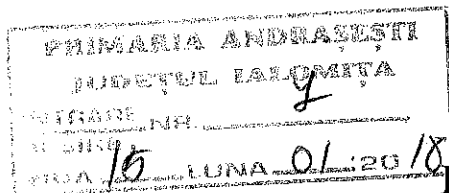 PRIMARIA ANDRASEȘTI
JUDEȚUL IALOMIȚA
INTRARE NR.
IEȘIRE
ZIUA 16 LUNA 01 20 18